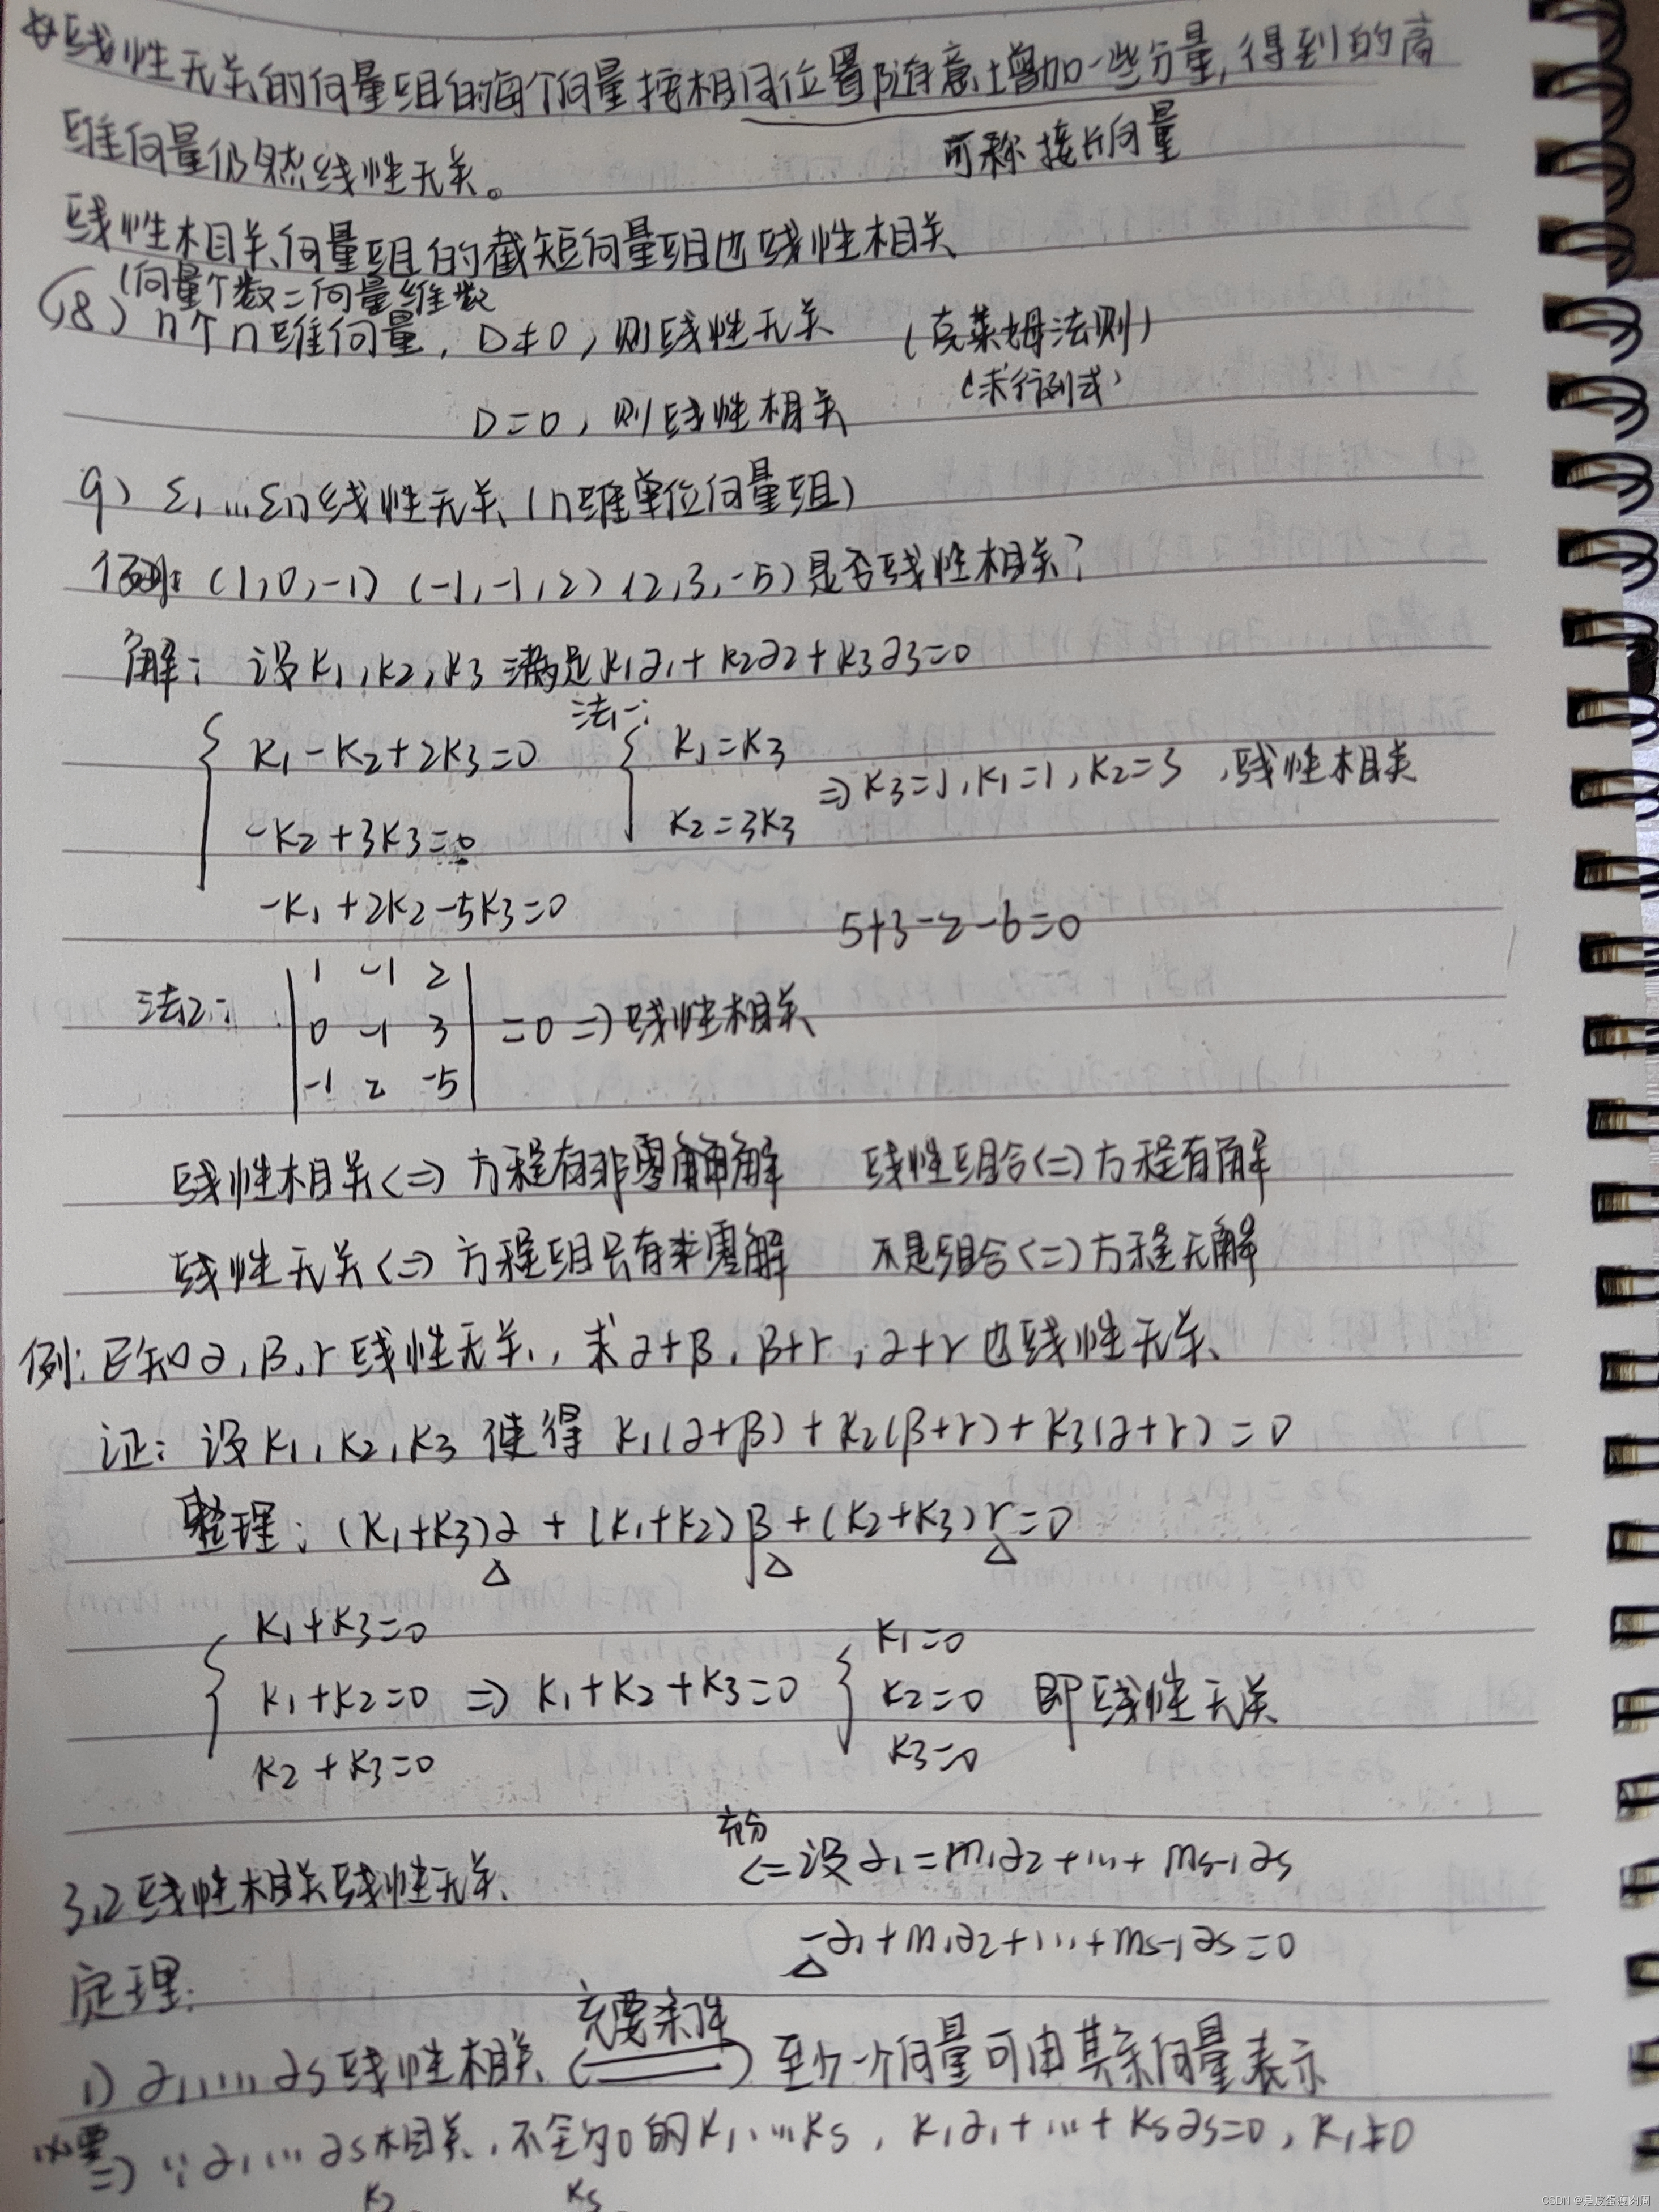 线性无关的向量组的每个向量按相同位置随意增加一些分量,得到的高
维向量仍然线性无关。
可称接长向量
线性相关向量组的截短向量组也线性相关
(向量个数=向量维数
(8) n个n维向量, D≠0, 则线性无关 (克莱姆法则)
D=0, 则线性相关 (求行列式)
9) ε1…εn线性无关 (n维单位向量组)
例: (1,0,-1) (-1,-1,2) (2,3,-5) 是否线性相关?
解: 设K1,K2,K3满足K1α1+K2α2+K3α3=0
法一:
{ K1-K2+2K3=0 { K1=K3
⇒K3=1,K1=1,K2=3 ,线性相关
-K2+3K3=0 K2=3K3
-K1+2K2-5K3=0
5+3-2-6=0
法2:
| 1 -1 2 |
| 0 -1 3 | =0 ⇒线性相关
| -1 2 -5 |
线性相关<=>方程有非零解 线性组合<=>方程有解
线性无关<=>方程组只有零解 不是组合<=>方程无解
例: 已知α,β,r线性无关, 求α+β, β+r, α+r也线性无关
证: 设K1,K2,K3使得 K1(α+β)+K2(β+r)+K3(α+r)=0
整理: (K1+K3)α+(K1+K2)β+(K2+K3)r=0
△ △ △
{ K1+K3=0 { K1=0
K1+K2=0 ⇒ K1+K2+K3=0 K2=0 即线性无关
K2+K3=0 K3=0
充分
<=设α1=m1α2+…+ms-1αs
3.2线性相关线性无关
-α1+m1α2+…+ms-1αs=0
△
定理:
充要条件
1) α1,…,αs线性相关 <=> 至少一个向量可由其余向量表示
必要
=> ∵α1…αs相关,不全为0的K1…Ks, K1α1+…+Ksαs=0, K1≠0
K2 Ks
CSDN @是皮蛋瘦肉周